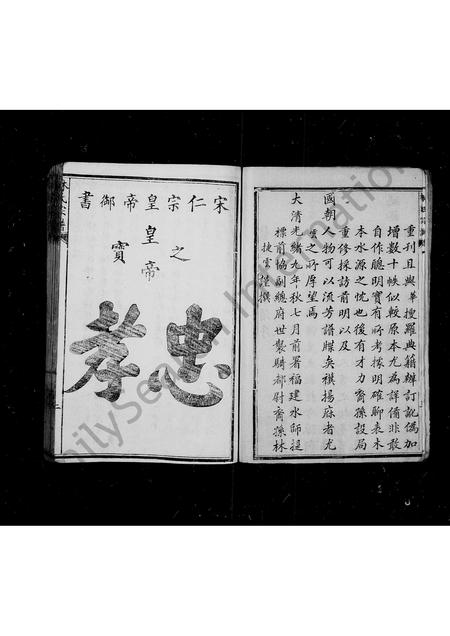 重刊且與華搜羅典籍辦訂訛偽加
增數十帙似較原本尤為詳備非敢
自作聰明實有所考據明確聊表木
本水源之忱也後有才力裔孫設局
重修採訪前明以及
國朝人物可以流芳譜牒矣撰揚庥者尤
賡之所厚望焉
大清光緒九年秋七月前署福建水師提
標前協副總府世襲騎都尉裔孫林
捷雲謹撰
宋仁宗皇帝御書
之
皇帝
寶
忠
孝
FamilySearch International